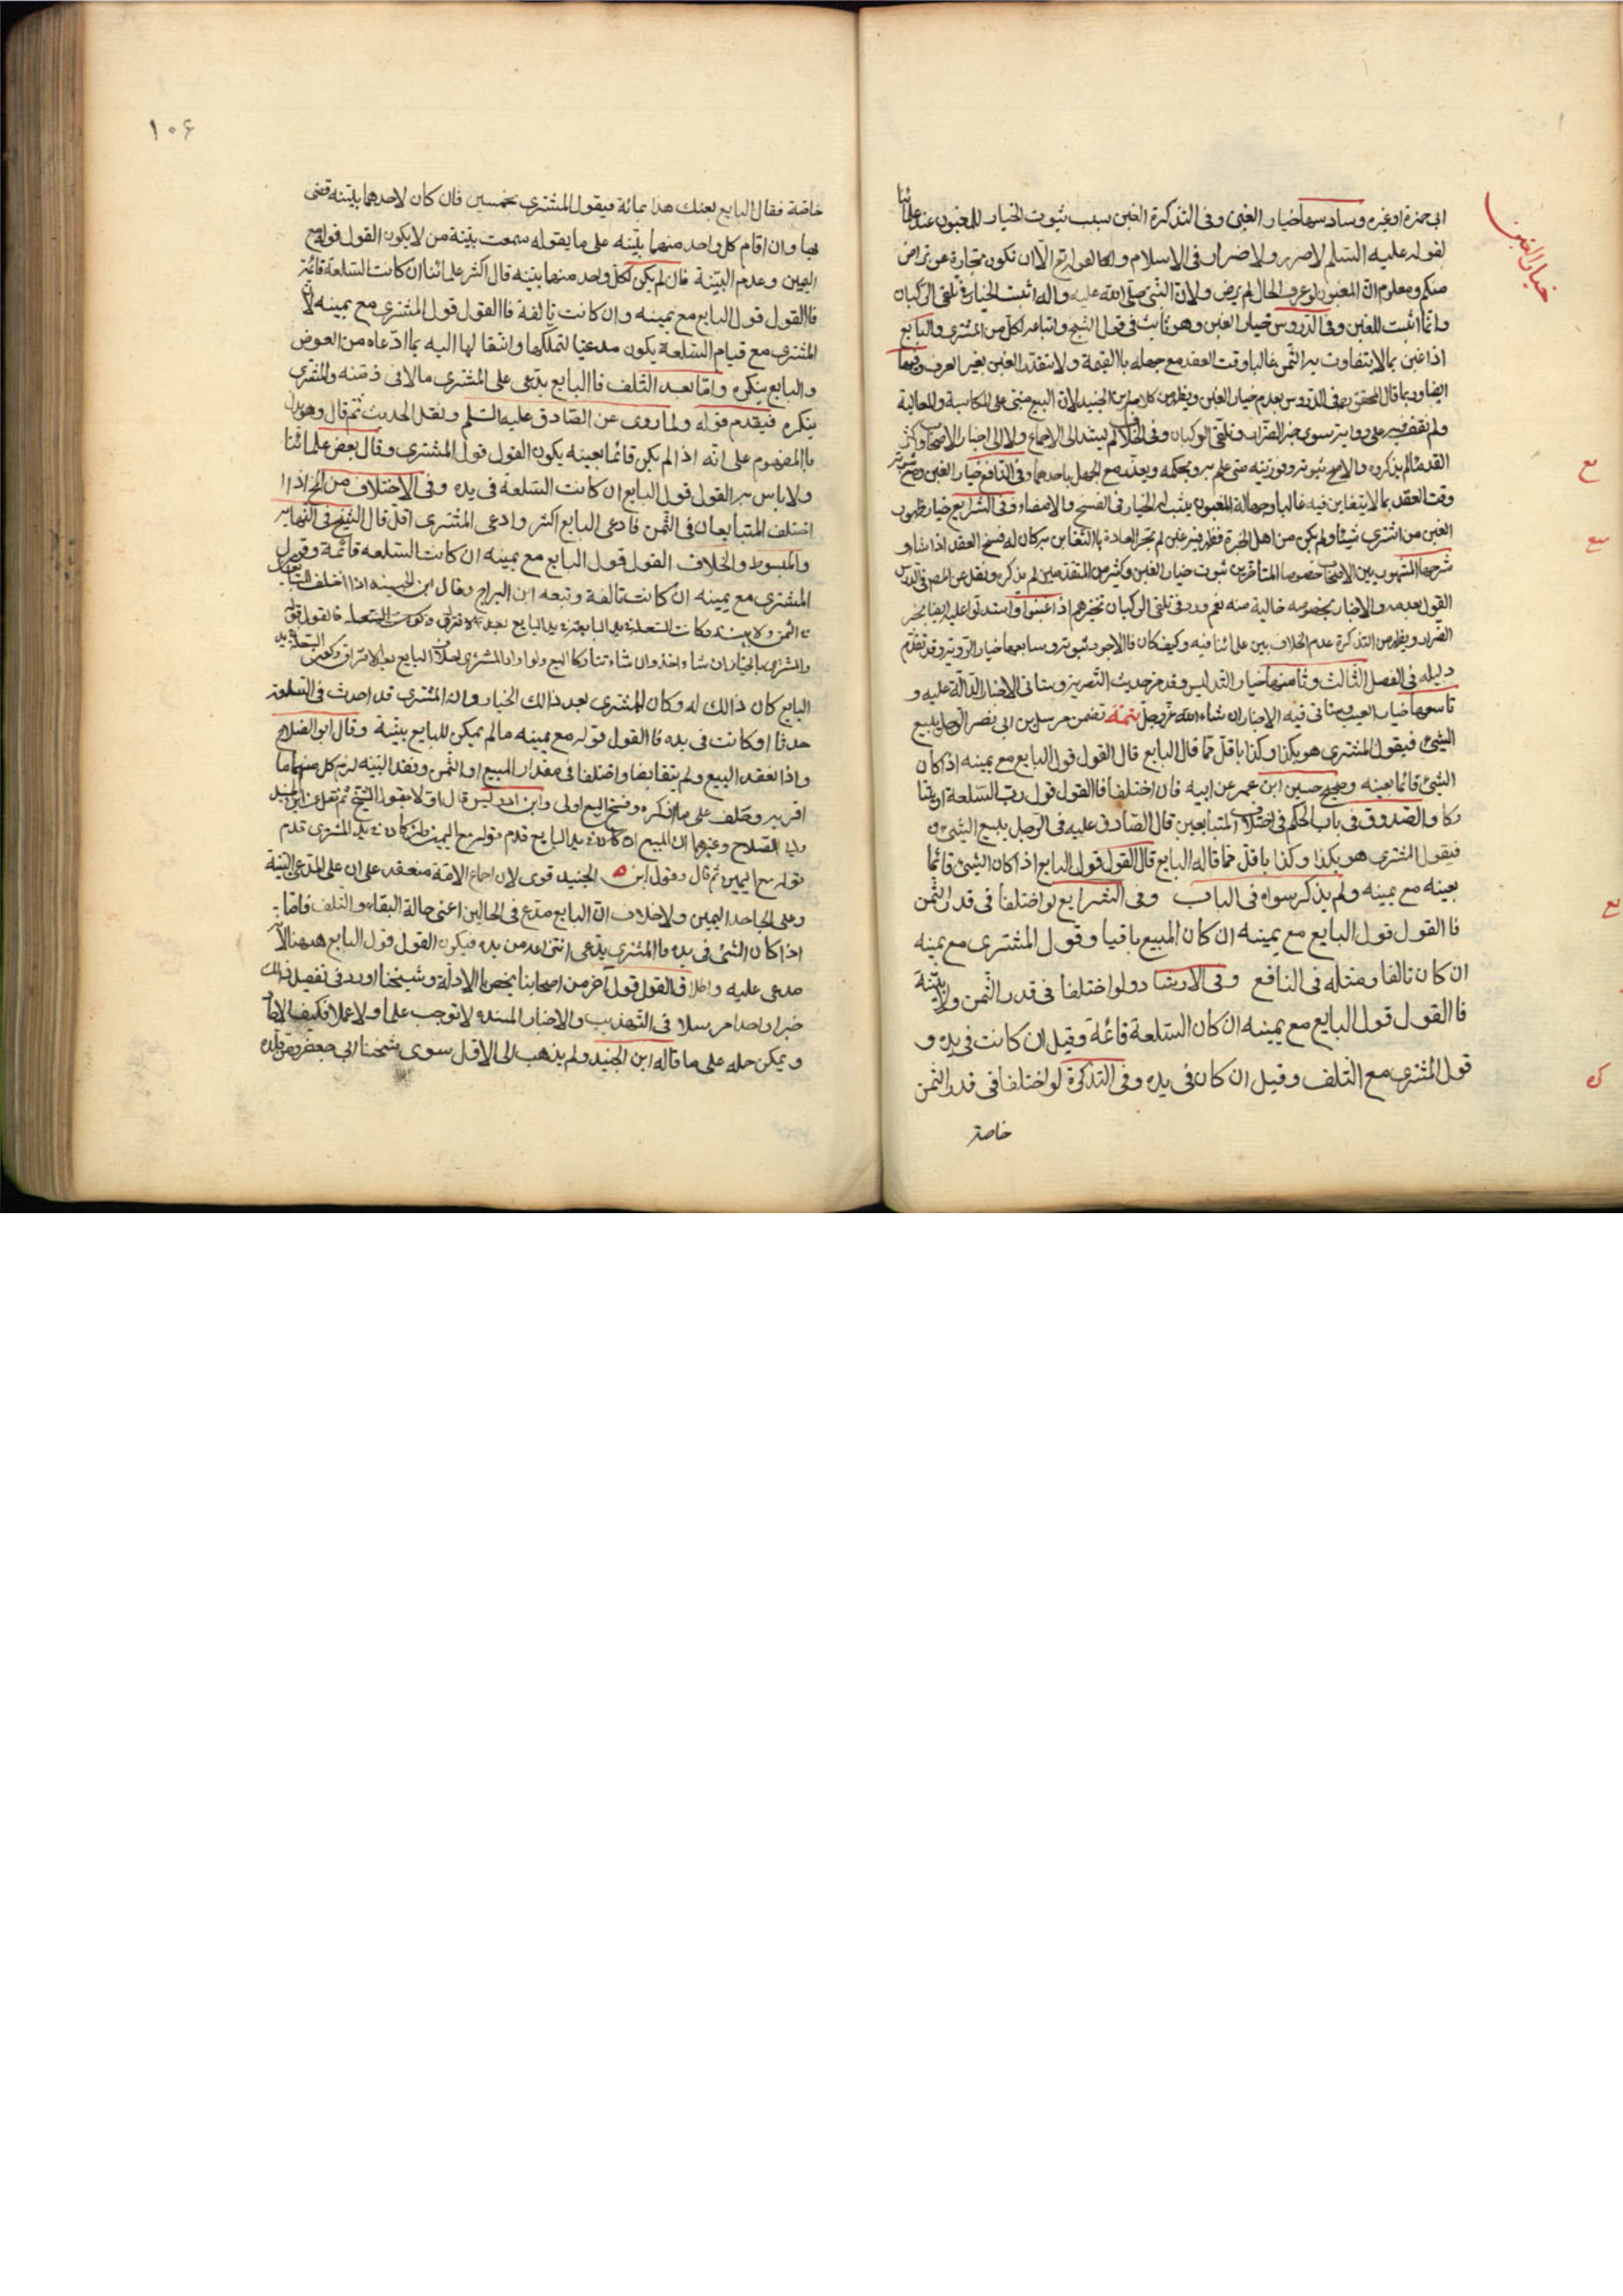 خيار الغبن
ابى حمزة او غيره وسادسها خيار الغبن وفى التذكرة الغبن سبب ثبوت الخيار للمغبون عند علمائنا
لقوله عليه السلم لا ضرر ولا ضرار فى الاسلام ولقوله تع الا ان تكون تجارة عن تراض
منكم ومعلوم ان المغبون لو عرف الحال لم يرض ولان النبى صلى الله عليه وآله اثبت الخيار فى تلقى الركبان
وانما اثبت للغبن وفى الدروس خيار الغبن وهو ثابت فى قول الشيخ واتباعه لكل من المشترى والبايع
اذا غبن بما لا يتفاوت به الثمن غالبا وقت العقد مع جهله باالقيمة ولا يتقدر الغبن بغير العرف وفيها
ايضا وربما قال المحقق فى الدروس بعدم خيار الغبن ويظهر من كلام ابن الجنيد لان البيع مبنى على المكاسبة والمغالبة
ولم نقف فيه على رواية سوى خبر الضرار وتلقى الركبان وفى الخلاف لم يستند الى الاجماع ولا الى اخبار الاصحاب واكثر
القدماء لم يذكروه والاصح ثبوته وفوريته متى علم به وبحكمه ويعذر مع الجهل باحدهما وفى النافع خيار الغبن ومع ثبوته
وقت العقد بما لا يتغابن فيه غالبا وجهالة المغبون يثبت له الخيار فى الفسخ والامضاء وفى الشرايع خيار ظهور
الغبن من اشترى شيئا ولم يكن من اهل الخبرة فظهر فيه غبن لم تجر العادة باالتغابن به كان له فسخ العقد اذا شاء وفى
شرحها المشهور بين الاصحاب خصوصا المتاخرين ثبوت خيار الغبن وكثير من المتقدمين لم يذكره ونقل عن المصم فى الدرس
القول بعدمه والاخبار بخصوصه خالية منه نعم ورد فى تلقى الركبان تخيرهم اذا غبنوا واستدلوا عليه ايضا بخبر
الضرار ويظهر من التذكرة عدم الخلاف بين علمائنا فيه وكيف كان فاالاجود ثبوته وسابعها خيار الرؤية وقد تقدم
دليله فى الفصل الثالث وثامنها خيار التدليس وقد مر حديث التصرية وستاتى الاخبار الدالة عليه و
تاسعها خيار العيب وستاتى فيه الاخبار ان شاء الله عز وجل تتمة تضمن مرسل ابن ابى نصر الرجل يبيع
الشئ فيقول المشترى هو بكذا وكذا باقل مما قال البايع قال القول قول البايع مع يمينه اذا كان
الشئ قائما بعينه وصحيح حسين ابن عمر عن ابيه فان اختلفا فاالقول قول رب السلعة او يتتا
ركا والصدوق فى باب الحكم فى اختلاف المتبايعين قال الصادق عليه فى الرجل يبيع الشئ و
فيقول المشترى هو بكذا وكذا باقل مما قاله البايع قال القول قول البايع اذا كان الشئ قائما
بعينه مع يمينه ولم يذكر سواه فى الباب وفى الشرايع لو اختلفا فى قدر الثمن
فاالقول قول البايع مع يمينه ان كان المبيع باقيا وقول المشترى مع يمينه
ان كان تالفا ومثله فى النافع وفى الارشاد ولو اختلفا فى قدر الثمن ولا بينة
فاالقول قول البايع مع يمينه ان كان السلعة قائمة وقيل ان كانت فى يده و
قول المشترى مع التلف وقيل ان كان فى يده وفى التذكرة لو اختلفا فى قدر الثمن
خاصة
١٠۶
خاصة فقال البايع بعتك هذا بمائة فيقول المشترى بخمسين فان كان لاحدهما بينة قضى
بها وان اقام كل واحد منهما بينة على ما يقوله سمعت بينة من لا يكون القول قوله مع
اليمين وعدم البينة فان لم يكن لكل واحد منهما بينة قال اكثر علمائنا ان كانت السلعة قائمة
فاالقول قول البايع مع يمينه وان كانت تالفة فاالقول قول المشترى مع يمينه لان
المشترى مع قيام السلعة يكون مدعيا لتملكها وانتقالها اليه بما ادعاه من العوض
والبايع ينكره واما بعد التلف فاالبايع يدعى على المشترى مالا فى ذمته والمشترى
ينكره فيقدم قوله ولما روى عن الصادق عليه السلم ونقل الحديث ثم قال وهو يدل
باالمفهوم على انه اذا لم يكن قائما بعينه يكون القول قول المشترى وقال بعض علمائنا
ولا باس به القول قول البايع ان كانت السلعة فى يده وفى الاختلاف من الخ اذا
اختلف المتبايعان فى الثمن فادعى البايع اكثر وادعى المشترى اقل قال الشيخ فى النهاية
والمبسوط والخلاف القول قول البايع مع يمينه ان كانت السلعة قائمة وقول
المشترى مع يمينه ان كانت تالفة وتبعه ابن البراج وقال ابن الجنيد اذا اختلف المتبايعان
فى الثمن ولا بينة وكانت السلعة فاالقول قول
والمشترى باالخيار ان شاء اخذ وان شاء تتاركا البيع
البايع كان ذالك له وكان للمشترى بعد ذالك الخيار وان المشترى قد احدث فى السلعة
حدثا او كانت فى يده فاالقول قوله مع يمينه ما لم يكن للبايع بينة وقال ابو الصلاح
واذا انعقد البيع ولم يتقابضا واختلفا فى مقدار المبيع او الثمن وفقد البينة لزم كل منهما ما
اقر به وحلف على ما انكره وفسخ البيع اولى وابن ادريس قال اولا بقول الشيخ ثم نقل عن ابن الجنيد
وابى الصلاح وغيرهما ان المبيع ان كان فى يد البايع قدم قوله مع اليمين وان كان فى يد المشترى قدم
قوله مع اليمين ثم قال وقول ابن الجنيد قوى لان اجماع الامة منعقد على ان على المدعى البينة
وعلى الجاحد اليمين ولا خلاف ان البايع مدع فى الحالين اعنى حالة البقاء والتلف فاما
اذا كان الشئ فى يده فاالمشترى يدعى انتزاعه من يده فيكون القول قول البايع هيهنا لانه
مدعى عليه واطلاق القول قول آخر من اصحابنا يخص باالادلة وشيخنا اورد فى تفصيل ذالك
خبرا واحدا مرسلا فى التهذيب والاخبار المسندة لا توجب علما ولا عملا فكيف
ويمكن حمله على ما قاله ابن الجنيد ولم يذهب الى الاقل سوى شيخنا ابى جعفر ومن قلده